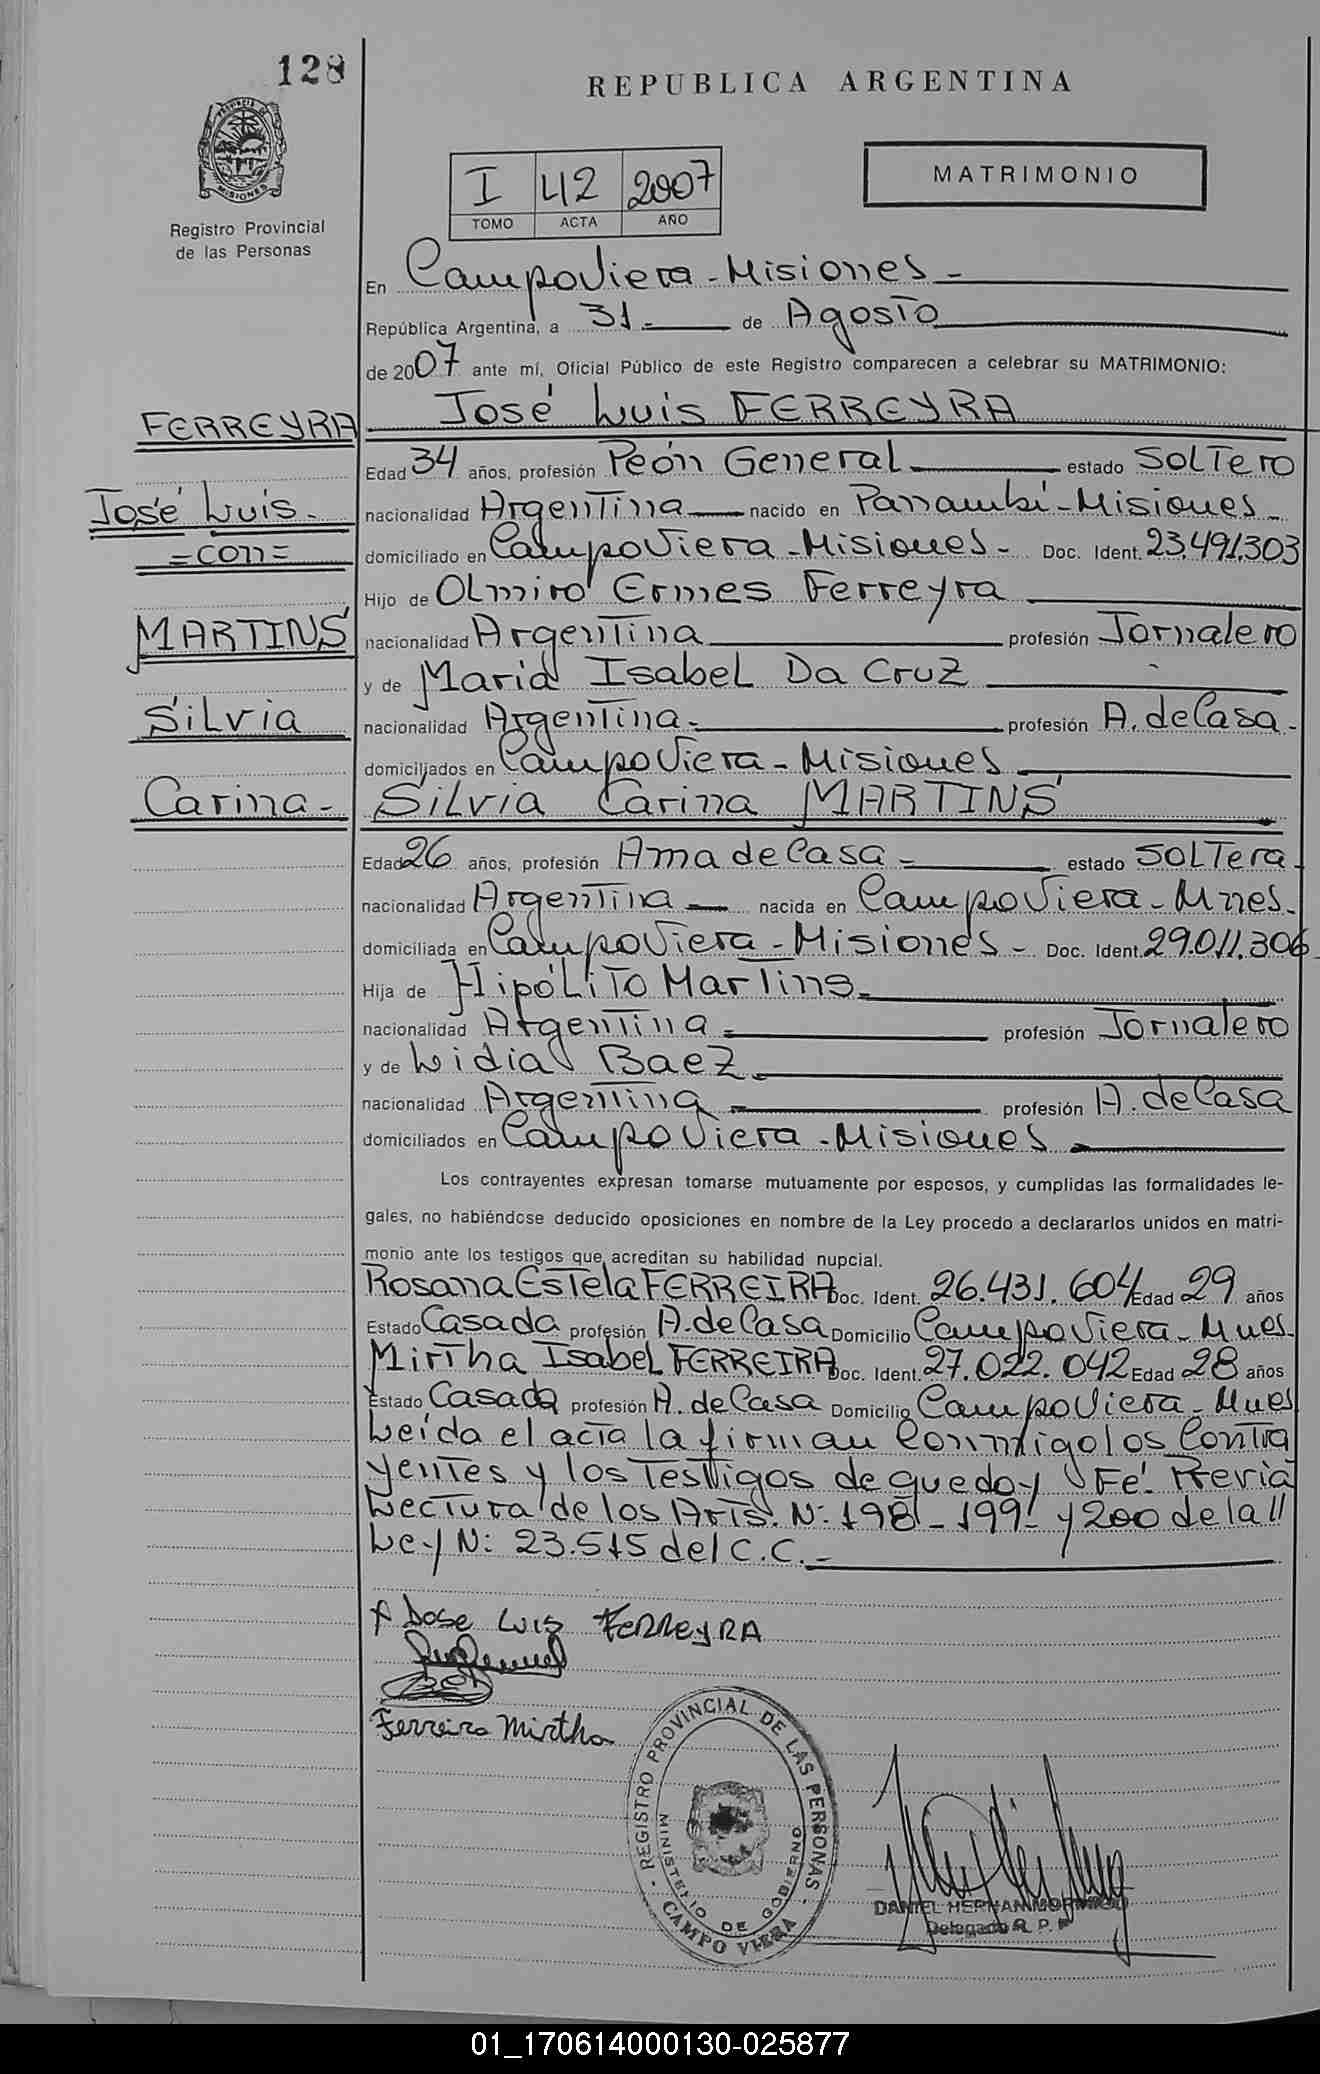 128
REPUBLICA ARGENTINA
MATRIMONIO
I 42 2007
TOMO ACTA AÑO
Registro Provincial
de las Personas
MISIONES
En Campo Viera - Misiones -
República Argentina, a 31- de Agosto
de 2007 ante mí, Oficial Público de este Registro comparecen a celebrar su MATRIMONIO:
FERREYRA
José Luis FERREYRA
Edad 34 años, profesión Peón General estado Soltero
José Luis.
nacionalidad Argentina nacido en Panambí - Misiones -
=con=
domiciliado en Campo Viera - Misiones - Doc. Ident. 23.491.303
Hijo de Olmiro Ermes Ferreyra
MARTINS
nacionalidad Argentina profesión Jornalero
y de Maria Isabel Da Cruz
Silvia
nacionalidad Argentina- profesión A. de Casa -
domiciliados en Campo Viera - Misiones
Carina-
Silvia Carina MARTINS
Edad 26 años, profesión Ama de Casa - estado Soltera
nacionalidad Argentina - nacida en Campo Viera - Mnes.
domiciliada en Campo Viera - Misiones - Doc. Ident. 29.011.306
Hija de Hipólito Martins.
nacionalidad Argentina - profesión Jornalero
y de Lidia Baez
nacionalidad Argentina profesión A. de Casa
domiciliados en Campo Viera - Misiones
Los contrayentes expresan tomarse mutuamente por esposos, y cumplidas las formalidades le-
gales, no habiéndose deducido oposiciones en nombre de la Ley procedo a declararlos unidos en matri-
monio ante los testigos que acreditan su habilidad nupcial.
Rosana Estela FERREIRA Doc. Ident. 26.431.604 Edad 29 años
Estado Casada profesión A. de Casa Domicilio Campo Viera - Mnes.
Mirtha Isabel FERREIRA Doc. Ident. 27.022.042 Edad 28 años
Estado Casada profesión A. de Casa Domicilio Campo Viera - Mnes
Leída el acta la firman Conmigo los Contra
yentes y los testigos de que doy Fé. Previa
Lectura de los Arts. N: 198 - 199- y 200 de la //
Ley N: 23.515 del C.C. -
Jose Luis FERREyRA
Ferreira Mirtha
REGISTRO PROVINCIAL DE LAS PERSONAS
MINISTERIO DE GOBIERNO
CAMPO VIERA
DANIEL HERNAN
Delegado R. P. P
01_170614000130-025877